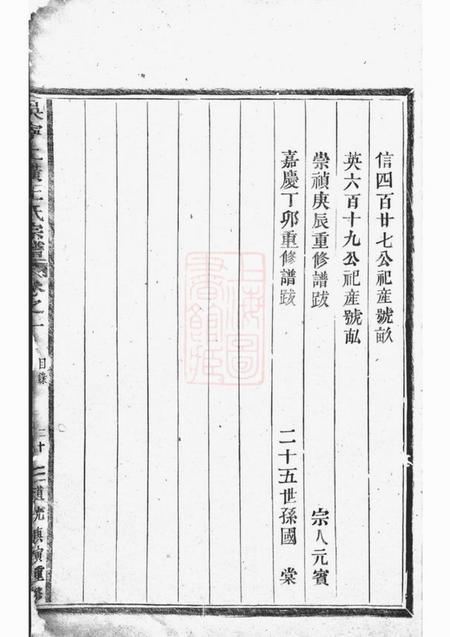 信四百廿七公祀產號畝
英六百十九公祀產號畝
崇禎庚辰重修譜跋 宗人元賓
嘉慶丁卯重修譜跋 二十五世孫國棠
王氏宗譜
卷之一
目錄
重修
上海圖書館藏